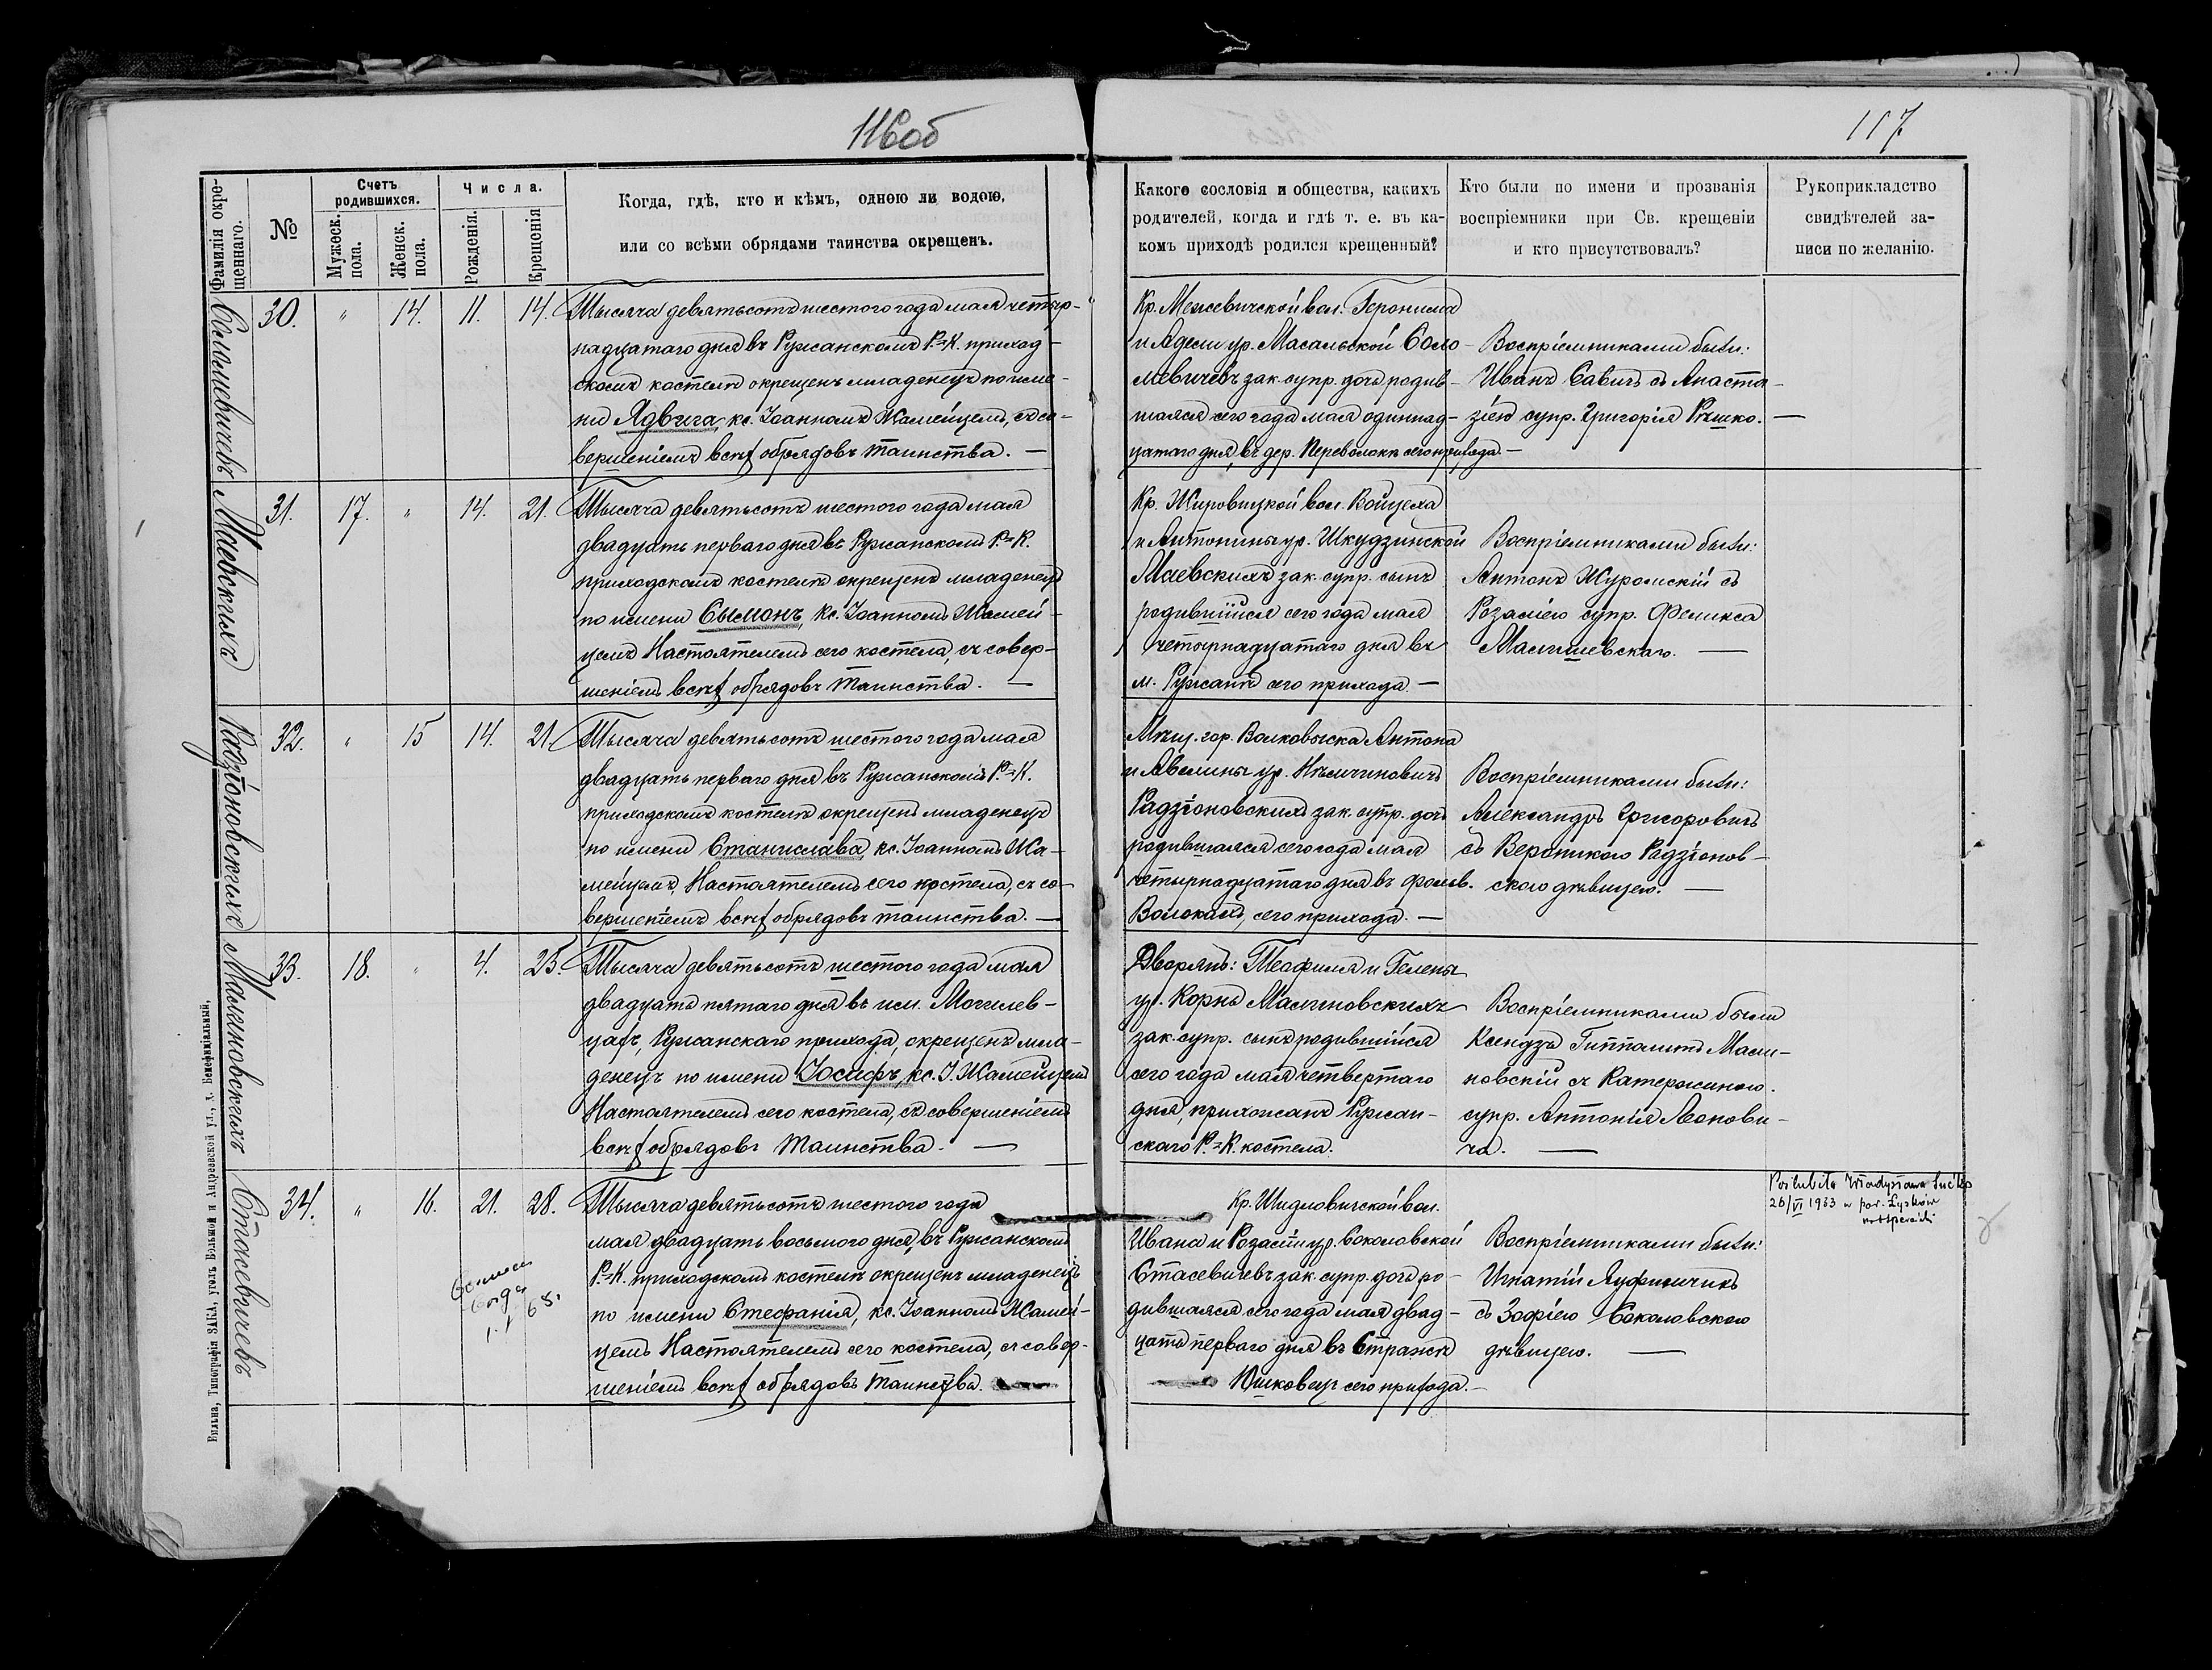 116об
117
Фамилія окре-
щеннаго.
№
Счетъ
родившихся.
Мужеск.
пола.
Женск.
пола.
Числа.
Рожденія.
Крещенія
Когда, гдѣ, кто и кѣмъ, одною ли водою,
или со всѣми обрядами таинства окрещенъ.
Какого сословія и общества, какихъ
родителей, когда и гдѣ т. е. въ ка-
комъ приходѣ родился крещенный?
Кто были по имени и прозванія
воспріемники при Св. крещеніи
и кто присутствовалъ?
Рукоприкладство
свидѣтелей за-
писи по желанію.
Соломевичевъ
30. " 14. 11. 14.
Тысяча девятьсотъ шестого года мая четыр-
надцатаго дня въ Ружанскомъ Р.=К. приход-
скомъ костелѣ окрещенъ младенецъ по име-
ни Ядвига, кс. Іоанномъ Жамейцемъ, съ со-
вершеніемъ всѣхъ обрядовъ таинства. —
Кр. Межевичской вол. Геронима
и Адели ур. Масальской Соло-
мевичевъ зак. супр. дочь родив-
шаяся сего года мая одиннад-
цатаго дня, въ дер. Переволокѣ сего прихода. —
Воспріемниками были:
Иванъ Савичъ съ Анаста-
зіею супр. Григорія Рѣшко. —
Маевскихъ
31. 17. " 14. 21.
Тысяча девятьсотъ шестого года мая
двадцать перваго дня въ Ружанскомъ Р.=К.
приходскомъ костелѣ окрещенъ младенецъ
по имени Сымонъ, кс. Іоанномъ Жамей-
цемъ Настоятелемъ сего костела, съ совер-
шеніемъ всѣхъ обрядовъ таинства. —
Кр. Жировицкой вол. Войцеха
и Антонины ур. Шкудзинской
Маевскихъ зак. супр. сынъ
родившійся сего года мая
четырнадцатаго дня въ
м. Ружанѣ сего прихода. —
Воспріемниками были:
Антонъ Журомскій съ
Розаліею супр. Феликса
Малишевскаго. —
Радзіоновскихъ
32. " 15 14. 21.
Тысяча девятьсотъ шестого года мая
двадцать перваго дня въ Ружанскомъ Р.=К.
приходскомъ костелѣ окрещенъ младенецъ
по имени Станислава, кс. Іоанномъ Жа-
мейцемъ, Настоятелемъ сего костела, съ со-
вершеніемъ всѣхъ обрядовъ таинства. —
Мѣщ. гор. Волковыска Антона
и Авелины ур. Нѣмчиновичъ
Радзіоновскихъ зак. супр. дочь
родившаяся сего года мая
четырнадцатаго дня въ фольв.
Волокахъ, сего прихода. —
Воспріемниками были:
Александръ Григоровичъ
съ Вероникою Радзіонов-
скою дѣвицею. —
Малиновскихъ
33. 18. " 4. 25.
Тысяча девятьсотъ шестого года мая
двадцать пятаго дня въ им. Могилев-
цахъ, Ружанскаго прихода, окрещенъ мла-
денецъ по имени Юсифъ, кс. І. Жамейцемъ
Настоятелемъ сего костела, съ совершеніемъ
всѣхъ обрядовъ таинства. —
Дворянъ: Теофиля и Гелены
ур. Корнъ Малиновскихъ
зак. супр. сынъ родившійся
сего года мая четвертаго
дня, прихожанъ Ружан-
скаго Р.=К. костела.
Воспріемниками были
Ксендзъ Гипполитъ Мали-
новскій съ Катержиною
супр. Антонія Леонови-
ча. —
Стасевичевъ
34. " 16. 21. 28.
Тысяча девятьсотъ шестого года
мая двадцать восьмого дня, въ Ружанскомъ
Р.=К. приходскомъ костелѣ окрещенъ младенецъ
по имени Стефанія, кс. Іоанномъ Жамей-
цемъ Настоятелемъ сего костела, съ совер-
шеніемъ всѣхъ обрядовъ таинства.
Кр. Шидловичской вол.
Ивана и Розаліи ур. Соколовской
Стасевичевъ зак. супр. дочь ро-
дившаяся сего года мая двад-
цать перваго дня въ Стражѣ
Юшковцы сего прихода. —
Воспріемниками были:
Игнатій Луфимчикъ
съ Зофіею Соколовскою
дѣвицею. —
Poślubiła Władysława
26/VI 1933 w par. Łysków
Вильна, Типографія ЗАКА, уголъ Вэльной и Андреевской ул., д. Бенефиціальный.